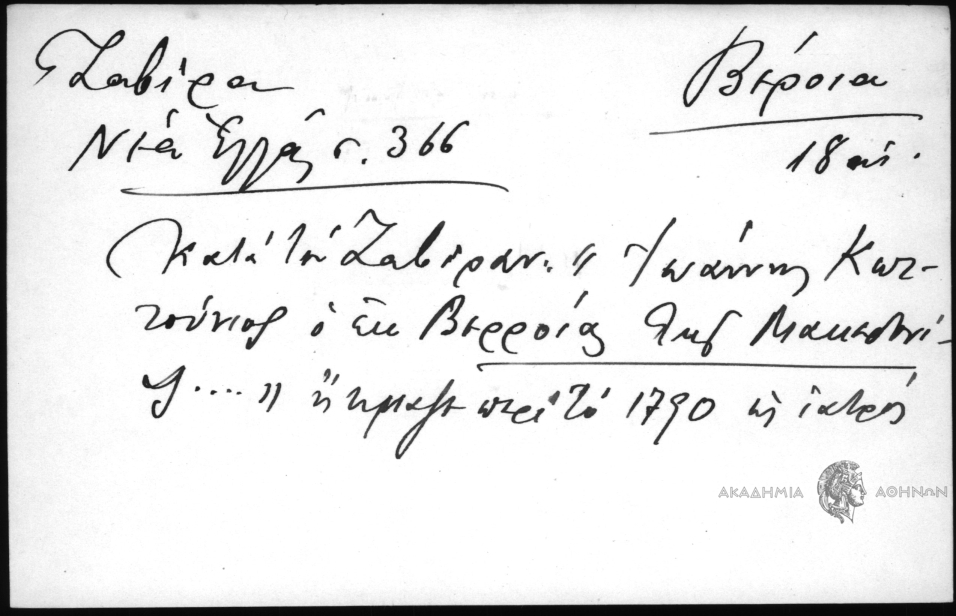 Γ Ζαβίρα
Νέα Ἑλλάς σ. 366
Βέροια
18 αἰ.
Κατὰ τὸν Ζαβίραν.. "Ἰωάννης Κωτ-
τούνιος ὁ ἐκ Βερροίας τῆς Μακεδονί-
ας .... " ἤκμασε περὶ τὸ 1790 ὡς ἰατρός
ΑΚΑΔΗΜΙΑ ΑΘΗΝΩΝ